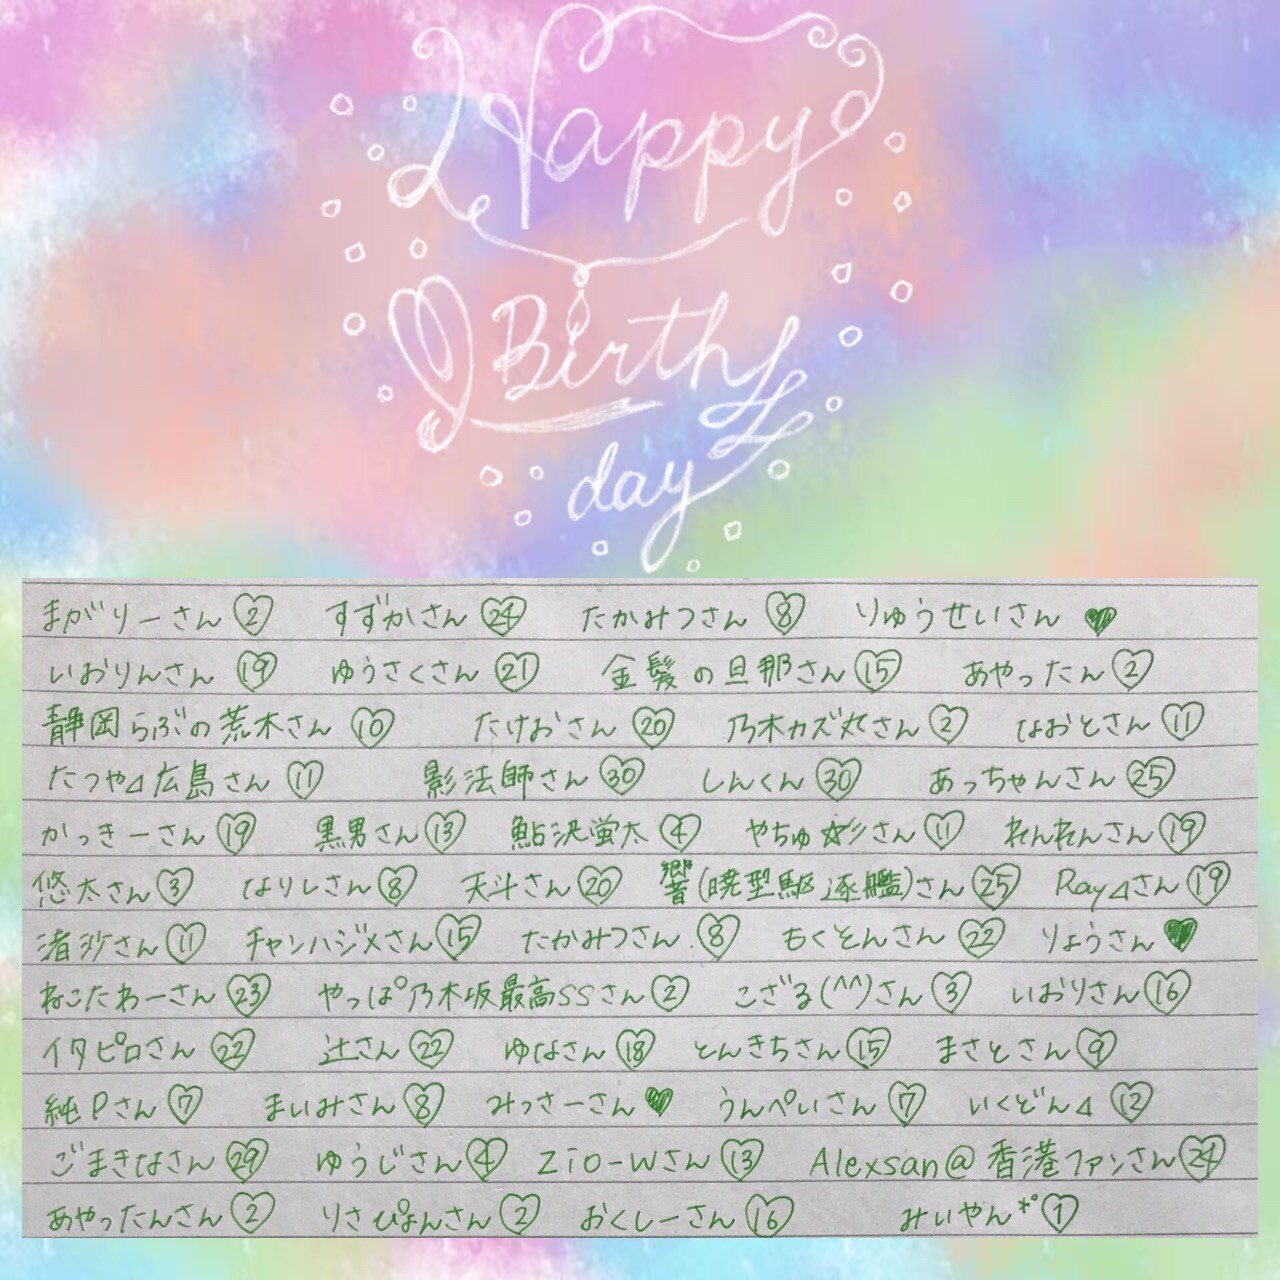 Happy
Birth
day
まがりーさん 2 すずかさん 24 たかみつさん 8 りゅうせいさん ♥
いおりんさん 19 ゆうさくさん 21 金髪の旦那さん 15 あやったん 2
静岡らぶの荒木さん 10 たけおさん 20 乃木カズ丸さん 2 なおとさん 11
たつや⊿広島さん 11 影法師さん 30 しんくん 30 あっちゃんさん 25
かっきーさん 19 黒男さん 13 鮎沢蛍太 4 やちゅ☆彡さん 11 れんれんさん 19
悠太さん 3 なりしさん 8 天斗さん 20 響(暁型駆逐艦)さん 25 Ray⊿さん 19
渚沙さん 11 チャンハジメさん 15 たかみつさん 8 もくとんさん 22 りょうさん ♥
ねこたわーさん 23 やっぱ乃木坂最高SSさん 2 こざる(^^)さん 3 いおりさん 16
イタピロさん 22 辻さん 22 ゆなさん 18 とんきちさん 15 まさとさん 9
純Pさん 7 まいみさん 8 みっさーさん ♥ うんぺいさん 7 いくどん⊿ 12
ごまきなさん 29 ゆうじさん 4 Zio-Wさん 13 Alexsan@香港ファンさん 24
あやったんさん 2 りさぴょんさん 2 おくしーさん 16 みいやん*° 1